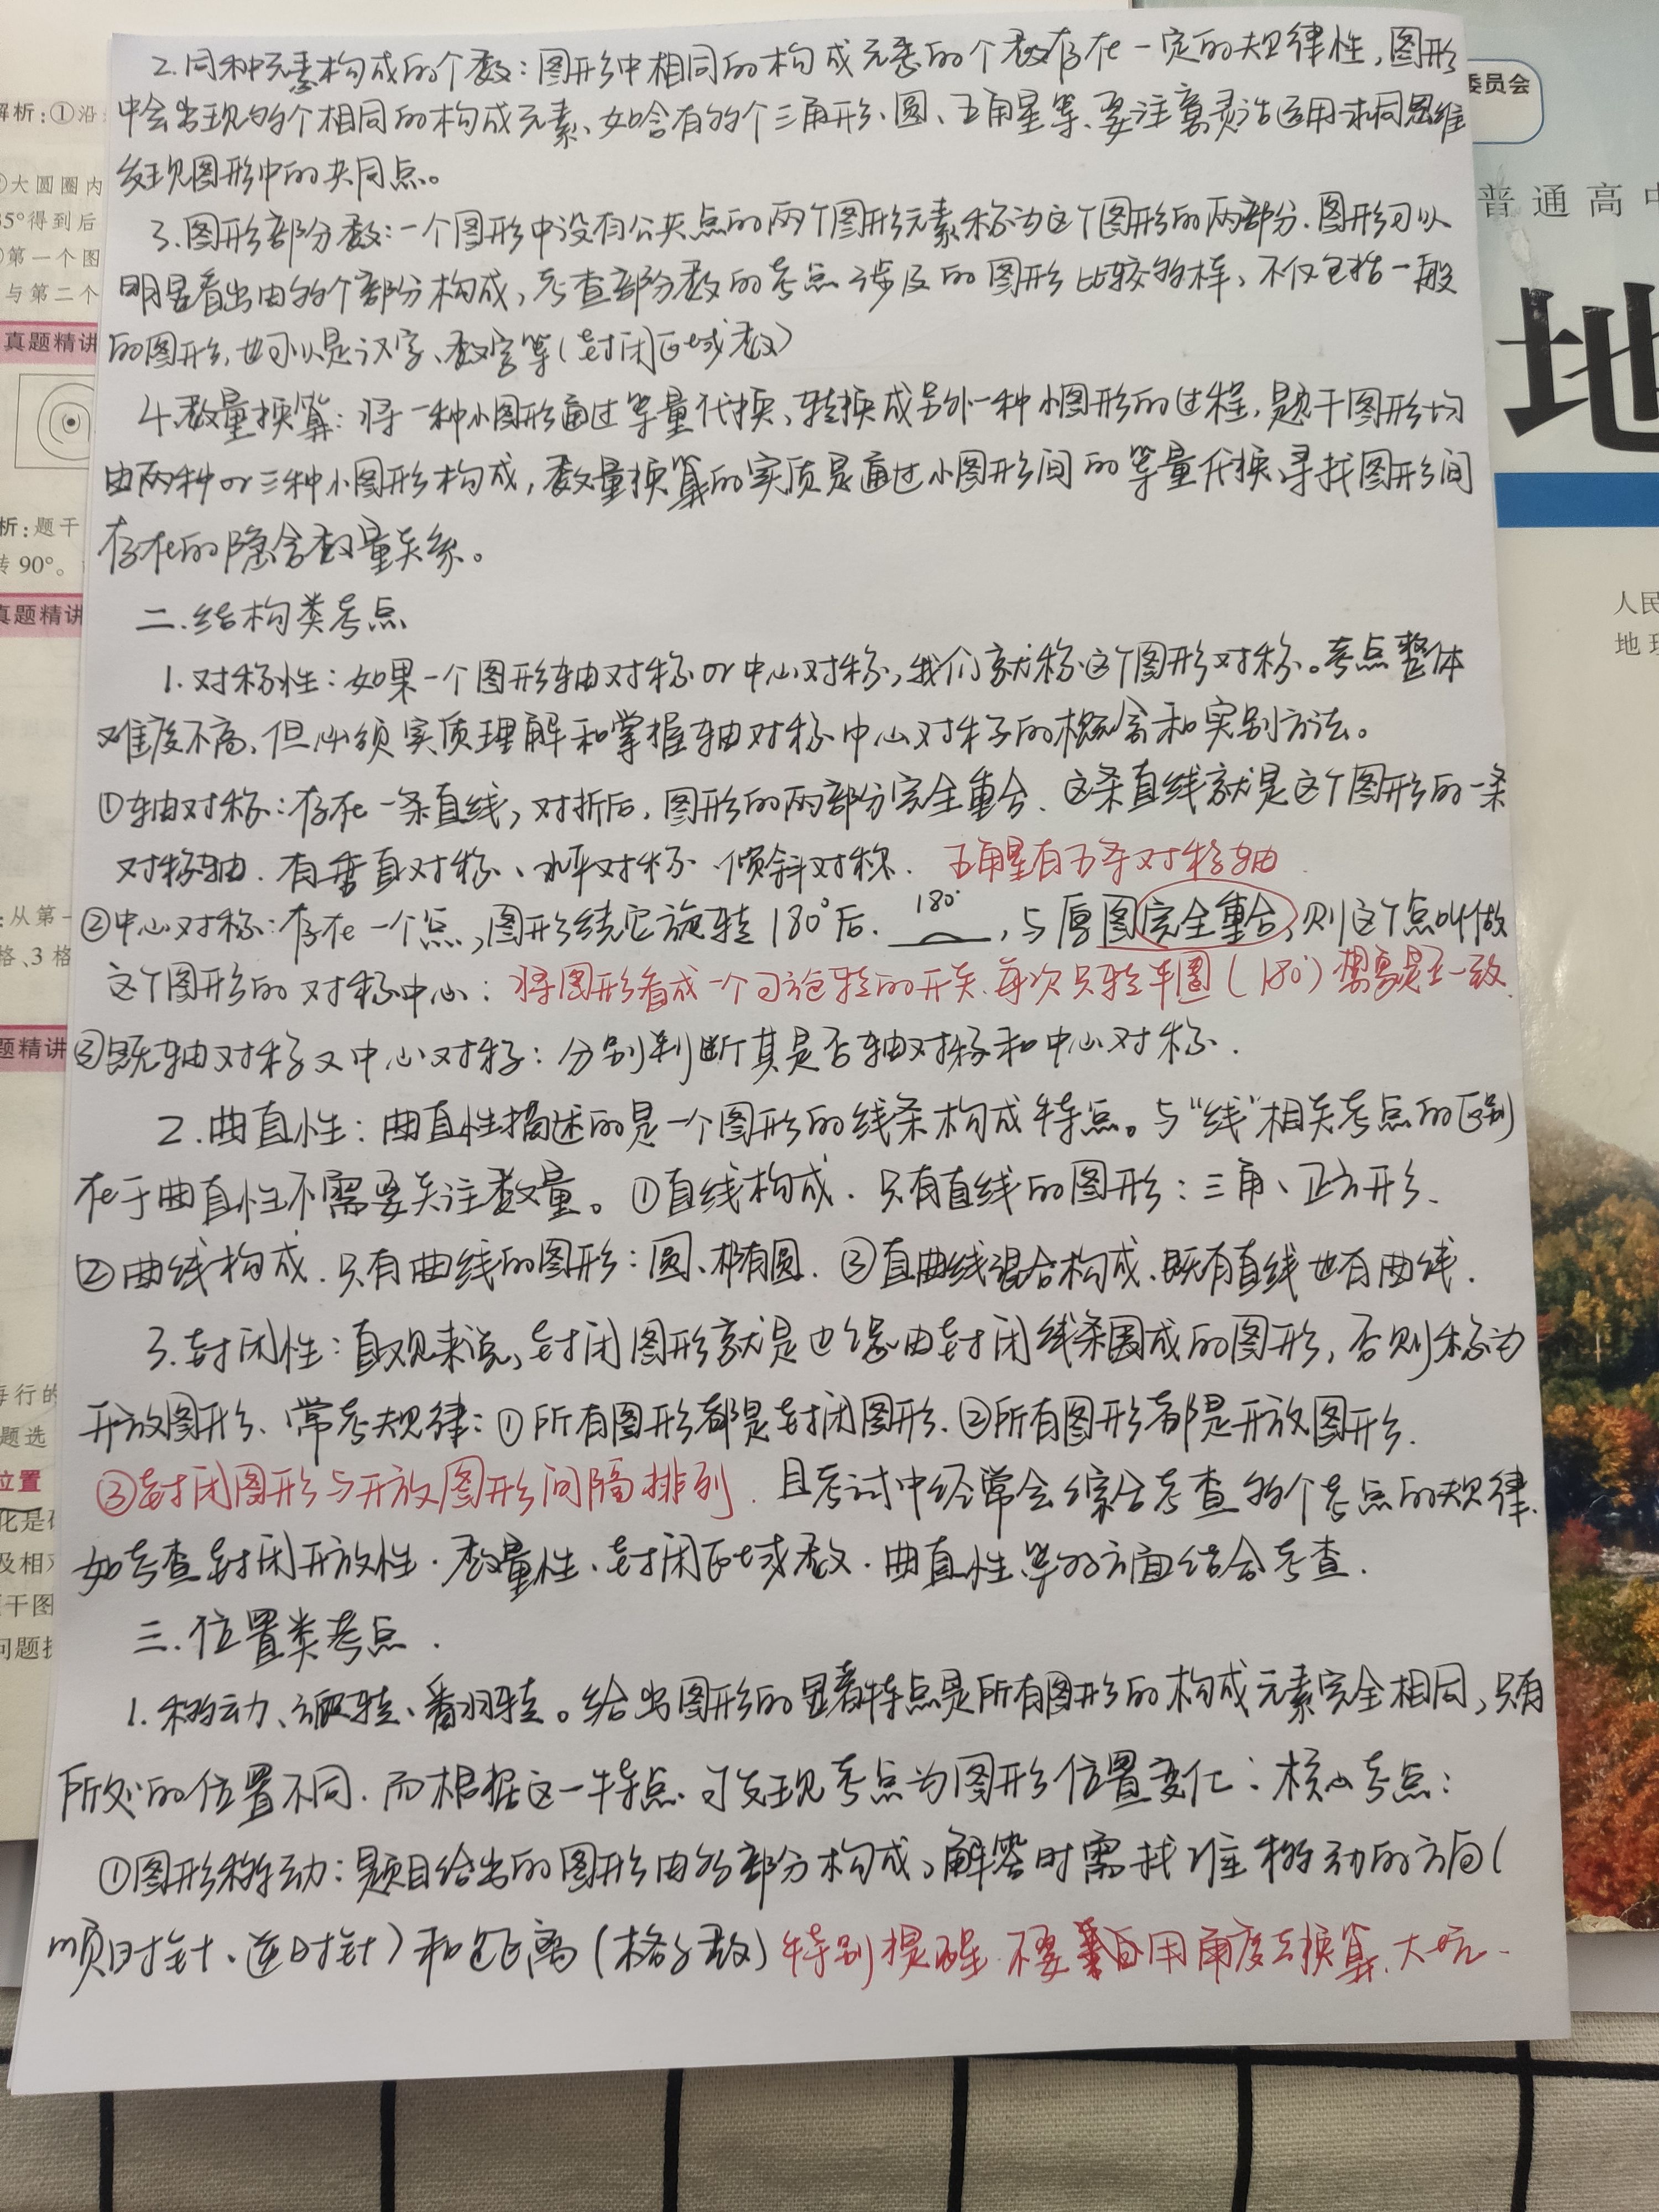 2.同种元素构成的个数：图形中相同的构成元素的个数存在一定的规律性，图形
中会出现多个相同的构成元素、如含有多个三角形、圆、五角星等、要注意灵活运用求同思维
发现图形中的共同点。
3.图形部分数：一个图形中没有公共点的两个图形元素称为这个图形的两部分.图形可以
明显看出由多个部分构成，考查部分数的考点涉及的图形比较多样，不仅包括一般
的图形，也可以是汉字、数字等（封闭区域数）
4.数量换算：将一种小图形通过等量代换，转换成另外一种小图形的过程，题干图形均
由两种or三种小图形构成，数量换算的实质是通过小图形间的等量代换寻找图形间
存在的隐含数量关系。
二.结构类考点
1.对称性：如果一个图形轴对称or中心对称，我们就称这个图形对称。考点整体
难度不高，但必须实质理解和掌握轴对称中心对称的概念和实别方法。
①轴对称：存在一条直线，对折后，图形的两部分完全重合、这条直线就是这个图形的一条
对称轴.有垂直对称、水平对称 倾斜对称. 五角星有五条对称轴
②中心对称：存在一个点，图形绕它旋转180°后. 180° ，与原图完全重合，则这个点叫做
这个图形的对称中心：将图形看成一个可旋转的开关.每次只转半圈（180°）想象是否一致.
③既轴对称又中心对称：分别判断其是否轴对称和中心对称.
2.曲直性：曲直性描述的是一个图形的线条构成特点。与“线”相关考点的区别
在于曲直性不需要关注数量。①直线构成.只有直线的图形：三角、正方形、
②曲线构成.只有曲线的图形：圆、椭圆.③直曲线混合构成、既有直线也有曲线.
3.封闭性：直观来说，封闭图形就是边缘由封闭线条围成的图形，否则称为
开放图形、常考规律：①所有图形都是封闭图形.②所有图形都是开放图形.
③封闭图形与开放图形间隔排列.且考试中经常会综合考查多个考点的规律.
如考查封闭开放性.数量性、封闭区域数.曲直性等多方面结合考查.
三.位置类考点.
1.移动、旋转、翻转。给出图形的显著特点是所有图形的构成元素完全相同，只有
所处的位置不同.而根据这一特点.可发现考点为图形位置变化：核心考点：
①图形移动：题目给出的图形由多部分构成，解答时需找准移动的方向（
顺时针、逆时针）和距离（格子数）特别提醒.不要用角度去换算.大坑.
解析：①沿
大圆圈内
35°得到后
第一个图
与第二个
真题精讲
析：题干
转 90°。
真题精讲
：从第一
格、3 格
题精讲
每行的
题选
位置
化是
及相对
干图
问题
委员会
普通高中
地
人民
地理